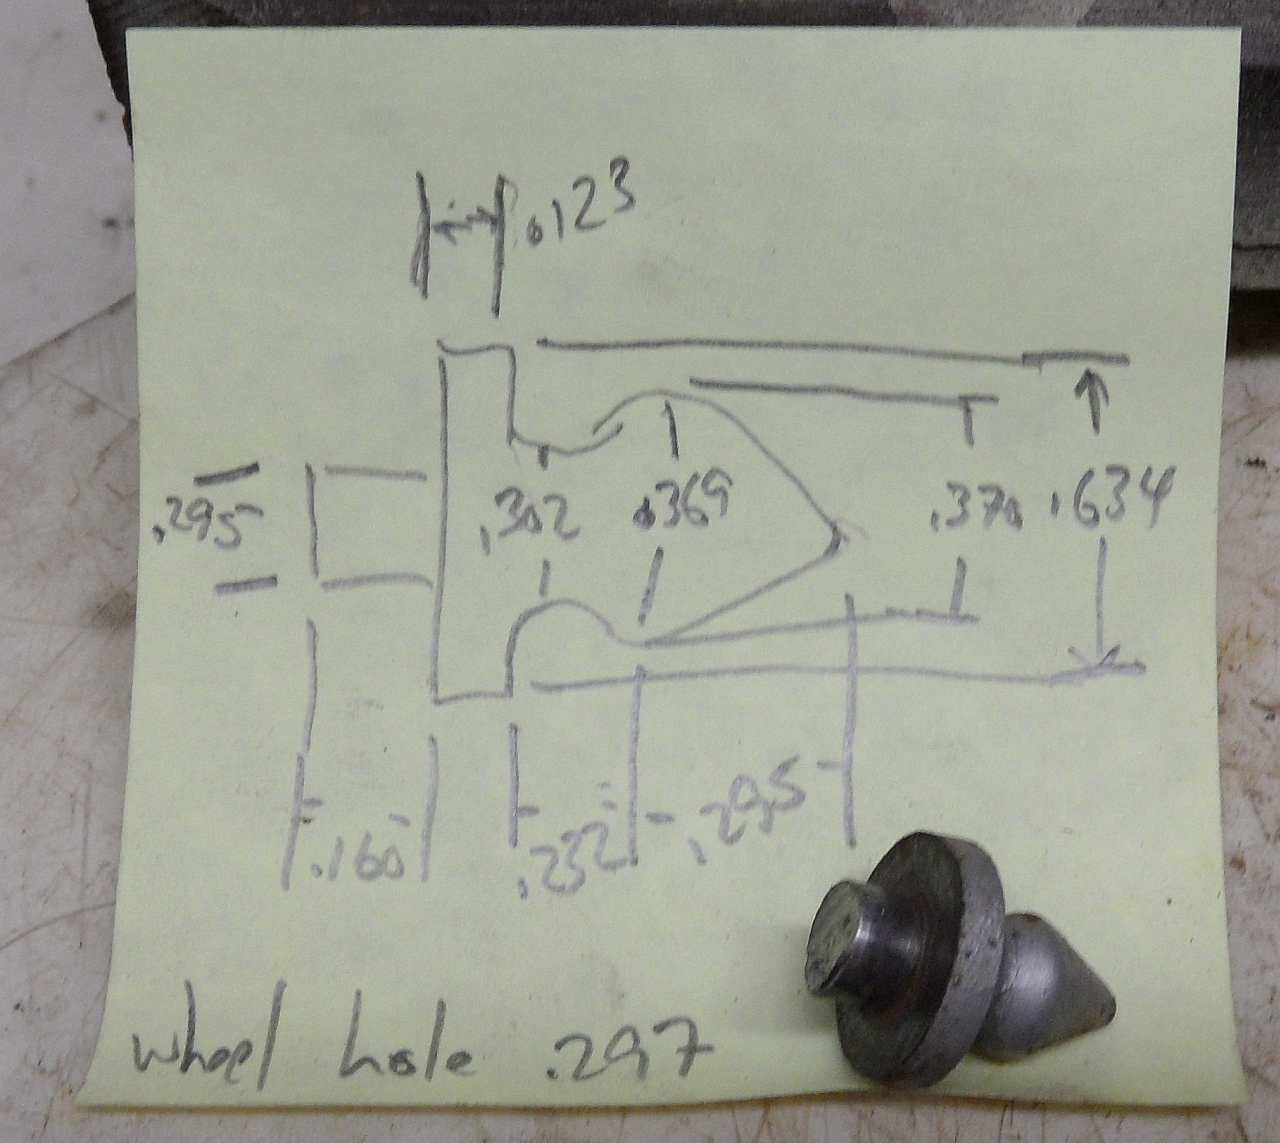 .123
.295
.302
.369
.370
.634
.160
.232
.295
wheel hole .297